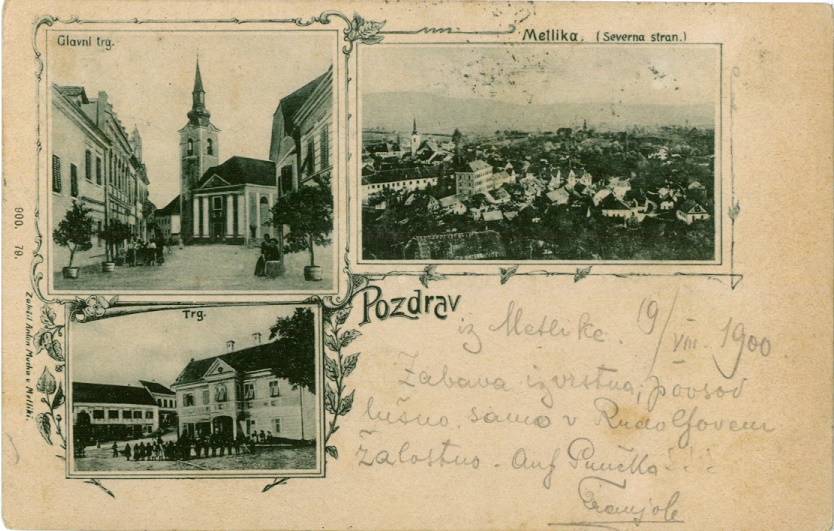 Glavni trg.
Metlika. (Severna stran.)
Trg.
900. 79.
Založil Anton Mucha v Metliki.
Pozdrav
iz Metlike. 19/VIII. 1900
Zabava izvrstna, povsod
lušno, samo v Rudolfovem
žalostno - Auf
Franjole